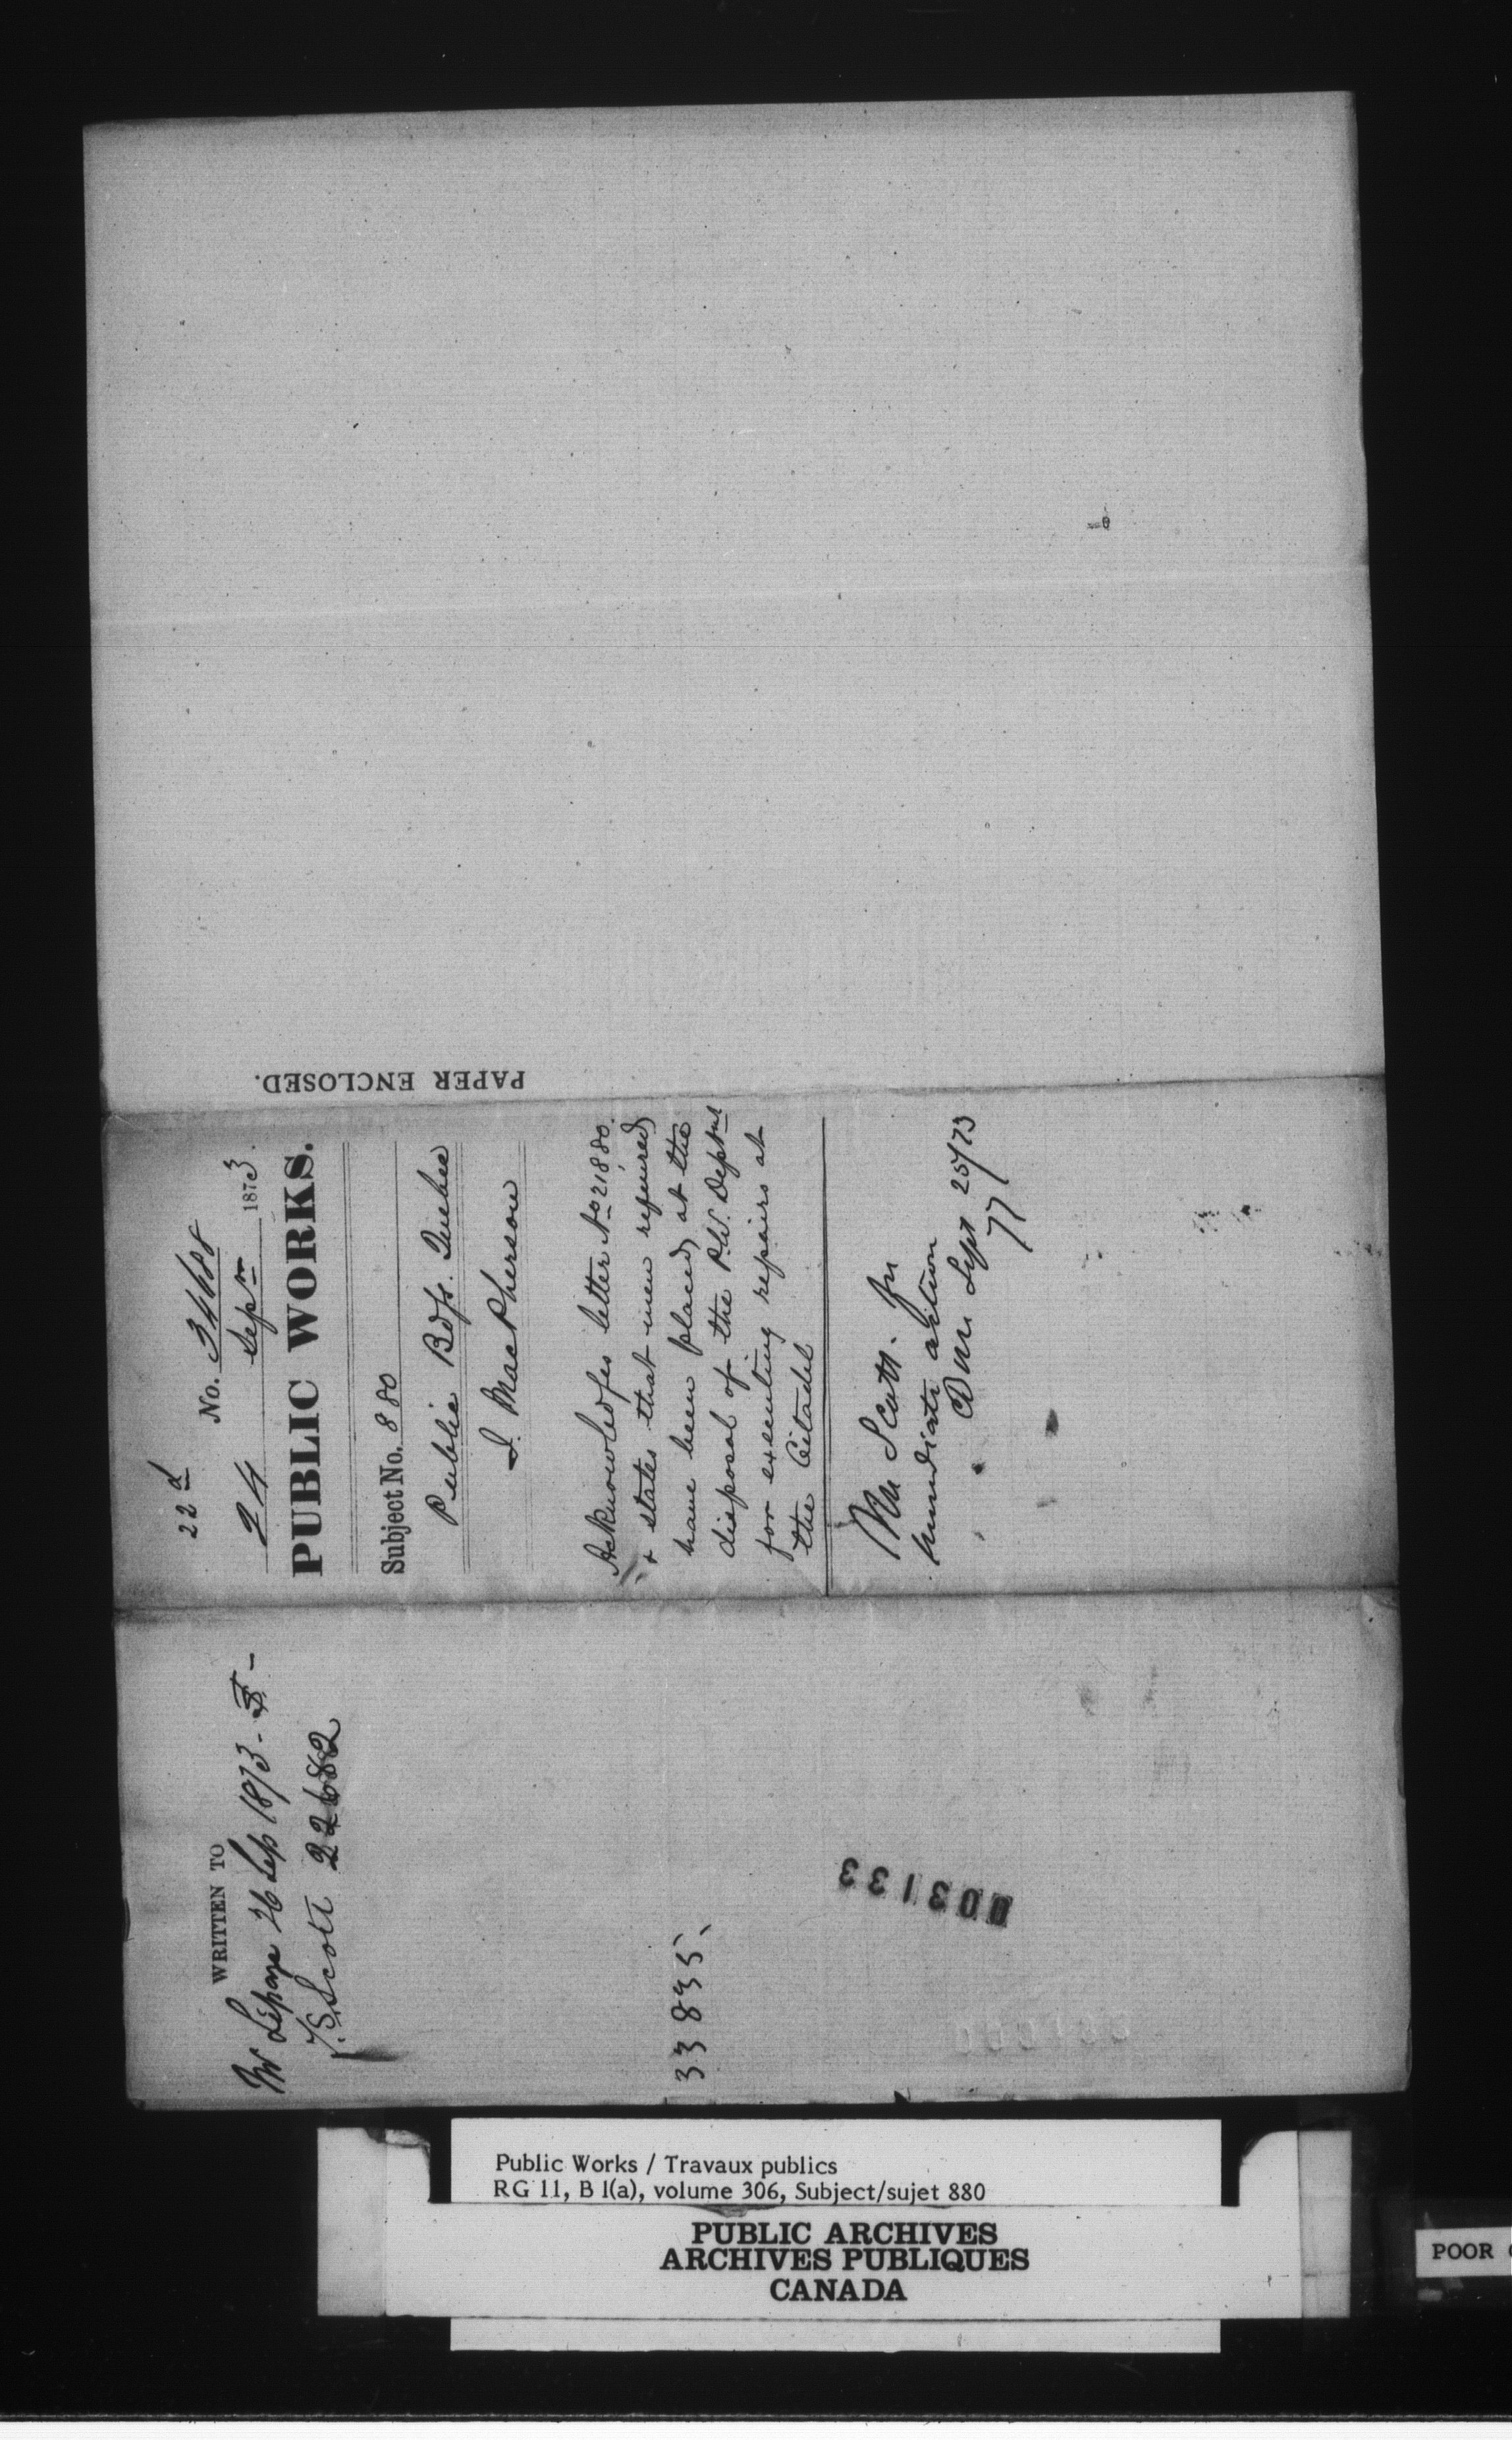 22d
No. 34688
24 Sepr 1873.
PUBLIC WORKS.
Subject No. 880
Public Bdgs. Quebec
I. MacPherson
Acknowledges letter No 21,880.
& states that men required
have been placed at the
disposal of the P.W. Deptmt
for executing repairs at
the Citadel
Mr Scott. for
immediate action
Sept 25/73
PAPER ENCLOSED.
WRITTEN TO
Mr Lepage 26 Sep 1873 -
T.S. Scott 22682
33835
003133
Public Works / Travaux publics
RG 11, B 1(a), volume 306, Subject/sujet 880
PUBLIC ARCHIVES
ARCHIVES PUBLIQUES
CANADA
POOR